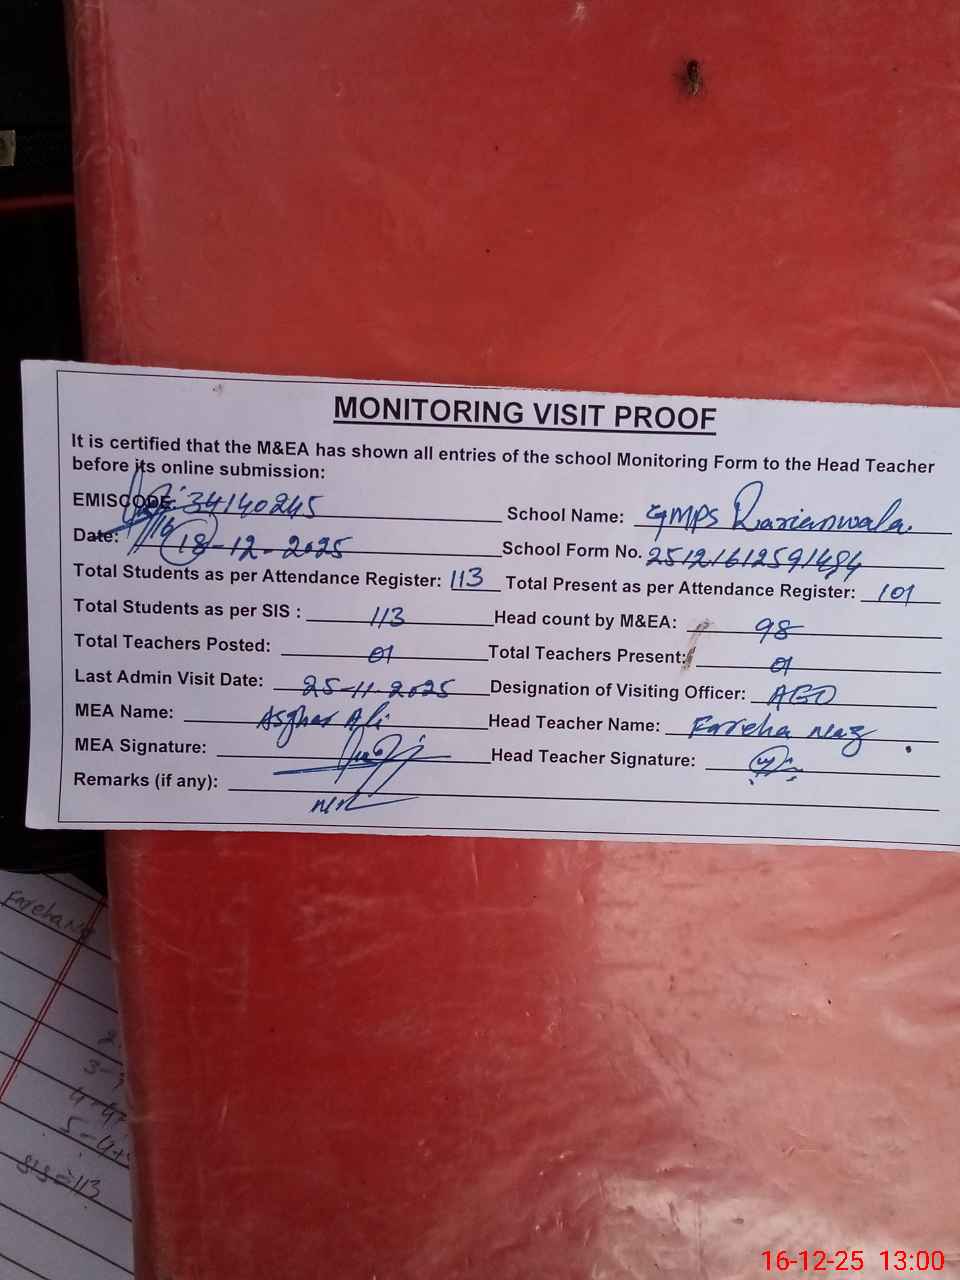 MONITORING VISIT PROOF
It is certified that the M&EA has shown all entries of the school Monitoring Form to the Head Teacher
before its online submission:
EMISCODE: 34140245 School Name: GMPS
Date: 18-12-2025 School Form No. 25121612591484
Total Students as per Attendance Register: 113 Total Present as per Attendance Register: 101
Total Students as per SIS : 113 Head count by M&EA: 98
Total Teachers Posted: 01 Total Teachers Present: 01
Last Admin Visit Date: 25-11-2025 Designation of Visiting Officer: AEO
MEA Name: Asghar Ali Head Teacher Name: Fareha Naz
MEA Signature: Head Teacher Signature:
Remarks (if any): Nil
Fareha N
2
3-3
4-4
5-4
SIS=113
16-12-25 13:00